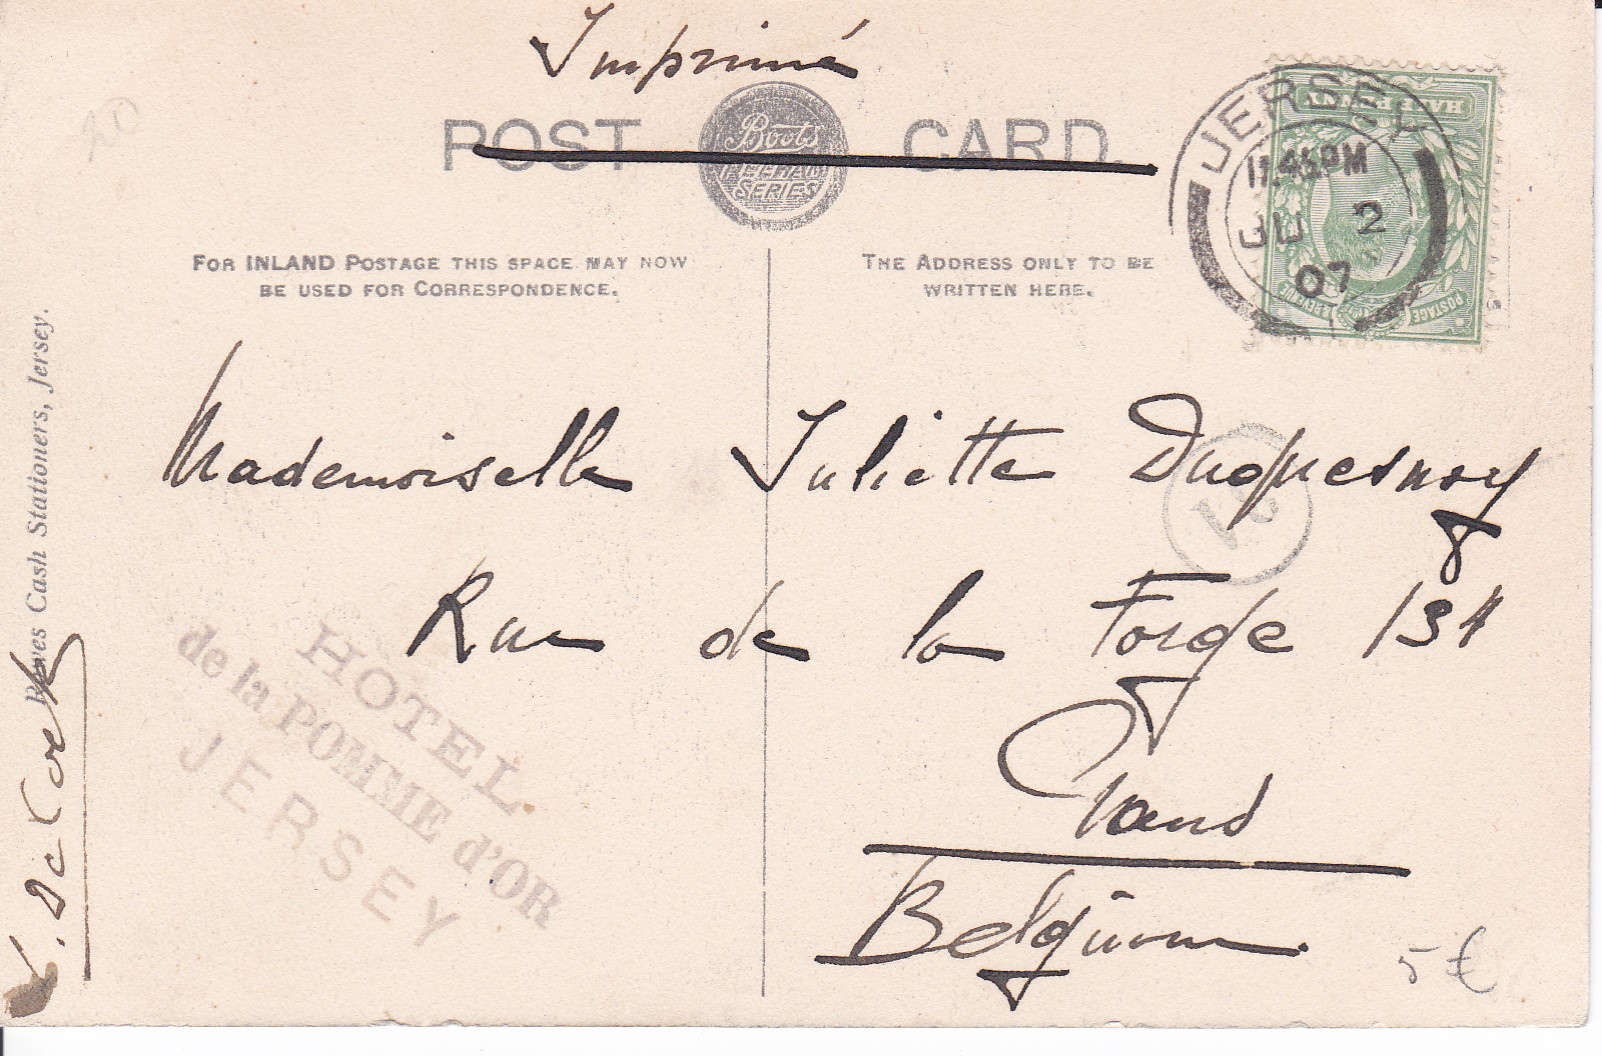 Imprimé
POST CARD.
Boots
PELHAM
SERIES
HALF PENNY
POSTAGE & REVENUE
JERSEY
11.45PM
JU 2
07
FOR INLAND POSTAGE THIS SPACE MAY NOW
BE USED FOR CORRESPONDENCE.
THE ADDRESS ONLY TO BE
WRITTEN HERE.
Mademoiselle Juliette Duquesnoy
Rue de la Forge
Gand
Belgium
HOTEL
de la POMME d'OR
JERSEY
Cash Stationers, Jersey.
20
5 €